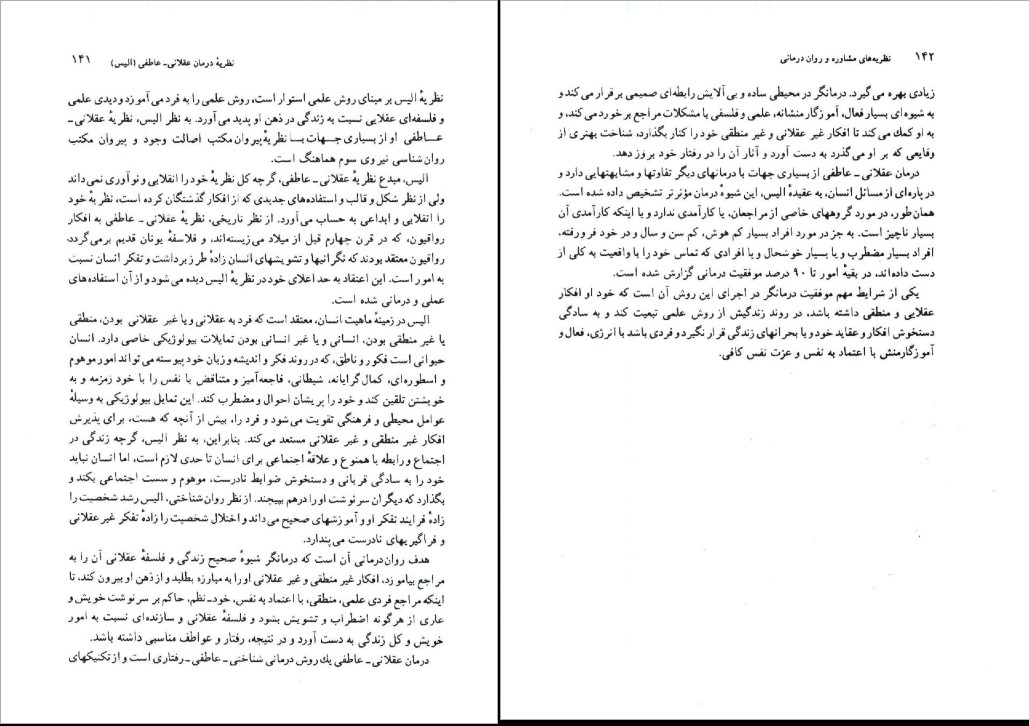 نظریهٔ درمان عقلانی ـ عاطفی (الیس) ۱۴۱
نظریهٔ الیس بر مبنای روش علمی استوار است، روش علمی را به فرد می‌آموزد و دیدی علمی
و فلسفه‌ای عقلایی نسبت به زندگی در ذهن او پدید می‌آورد. به نظر الیس، نظریهٔ عقلانی ـ
عـاطفی او از بسیاری جـهات بـا نظریهٔ پیروان مکتب اصالت وجود و پیروان مکتب
روان شناسی نیروی سوم هماهنگ است.
الیس، مبدع نظریهٔ عقلانی ـ عاطفی، گرچه کل نظریهٔ خود را انقلابی و نوآوری نمی‌داند
ولی از نظر شکل و قالب و استفاده‌های جدیدی که از افکار گذشتگان کرده است، نظریهٔ خود
را انقلابی و ابداعی به حساب می‌آورد. از نظر تاریخی، نظریهٔ عقلانی ـ عاطفی به افکار
رواقیون، که در قرن چهارم قبل از میلاد می‌زیسته‌اند، و فلاسفهٔ یونان قدیم برمی‌گردد.
رواقیون معتقد بودند که نگرانیها و تشویشهای انسان زادهٔ طرز برداشت و تفکر انسان نسبت
به امور است. این اعتقاد به حد اعلای خود در نظریهٔ الیس دیده می‌شود و از آن استفاده‌های
عملی و درمانی شده است.
الیس در زمینهٔ ماهیت انسان، معتقد است که فرد به عقلانی و یا غیر عقلانی بودن، منطقی
یا غیر منطقی بودن، انسانی و یا غیر انسانی بودن تمایلات بیولوژیکی خاصی دارد. انسان
حیوانی است فکور و ناطق، که در روند فکر و اندیشه و زبان خود پیوسته می‌تواند امور موهوم
و اسطوره‌ای، کمال گرایانه، شیطانی، فاجعه‌آمیز و متناقض با نفس را با خود زمزمه و به
خویشتن تلقین کند و خود را پریشان احوال و مضطرب کند. این تمایل بیولوژیکی به وسیلهٔ
عوامل محیطی و فرهنگی تقویت می‌شود و فرد را، بیش از آنچه که هست، برای پذیرش
افکار غیر منطقی و غیر عقلانی مستعد می‌کند. بنابراین، به نظر الیس، گرچه زندگی در
اجتماع و رابطه با همنوع و علاقهٔ اجتماعی برای انسان تا حدی لازم است، اما انسان نباید
خود را به سادگی قربانی و دستخوش ضوابط نادرست، موهوم و سست اجتماعی بکند و
بگذارد که دیگران سرنوشت او را درهم بپیچند. از نظر روان شناختی، الیس رشد شخصیت را
زادهٔ فرایند تفکر او و آموزشهای صحیح می‌داند و اختلال شخصیت را زادهٔ تفکر غیر عقلانی
و فراگیریهای نادرست می‌پندارد.
هدف روان‌درمانی آن است که درمانگر شیوهٔ صحیح زندگی و فلسفهٔ عقلانی آن را به
مراجع بیاموزد، افکار غیر منطقی و غیر عقلانی او را به مبارزه بطلبد و از ذهن او بیرون کند، تا
اینکه مراجع فردی علمی، منطقی، با اعتماد به نفس، خودـ نظم، حاکم بر سرنوشت خویش و
عاری از هرگونه اضطراب و تشویش بشود و فلسفهٔ عقلانی و سازنده‌ای نسبت به امور
خویش و کل زندگی به دست آورد و در نتیجه، رفتار و عواطف مناسبی داشته باشد.
درمان عقلانی ـ عاطفی یک روش درمانی شناختی ـ عاطفی ـ رفتاری است و از تکنیکهای
۱۴۲ نظریه‌های مشاوره و روان درمانی
زیادی بهره می‌گیرد. درمانگر در محیطی ساده و بی‌آلایش رابطه‌ای صمیمی برقرار می‌کند و
به شیوه‌ای بسیار فعال، آموزگار منشانه، علمی و فلسفی با مشکلات مراجع برخورد می‌کند، و
به او کمک می‌کند تا افکار غیر عقلانی و غیر منطقی خود را کنار بگذارد، شناخت بهتری از
وقایعی که بر او می‌گذرد به دست آورد و آثار آن را در رفتار خود بروز دهد.
درمان عقلانی ـ عاطفی از بسیاری جهات با درمانهای دیگر تفاوتها و مشابهتهایی دارد و
در پاره‌ای از مسائل انسان، به عقیدهٔ الیس، این شیوهٔ درمان مؤثرتر تشخیص داده شده است.
همان‌طور، در مورد گروههای خاصی از مراجعان، یا کارآمدی ندارد و یا اینکه کارآمدی آن
بسیار ناچیز است. به جز در مورد افراد بسیار کم هوش، کم سن و سال و در خود فرورفته،
افراد بسیار مضطرب و یا بسیار خوشحال و یا افرادی که تماس خود را با واقعیت به کلی از
دست داده‌اند، در بقیهٔ امور تا ۹۰ درصد موفقیت درمانی گزارش شده است.
یکی از شرایط مهم موفقیت درمانگر در اجرای این روش آن است که خود او افکار
عقلایی و منطقی داشته باشد، در روند زندگیش از روش علمی تبعیت کند و به سادگی
دستخوش افکار و عقاید خود و یا بحرانهای زندگی قرار نگیرد و فردی باشد با انرژی، فعال و
آموزگارمنش با اعتماد به نفس و عزت نفس کافی.